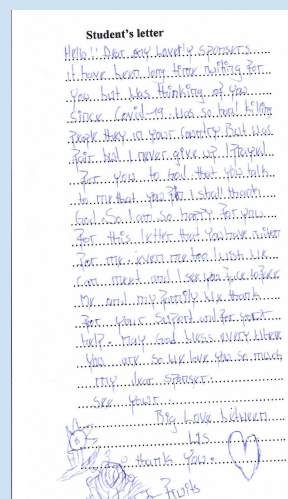 Student's letter
Hello!! Dear my Lovely sponsers
it have been long time writing for
you but was thinking of you
since Covid-19 was so bad killing
people they in your Country But was
fair but I never give up I prayed
for you to God that you talk
to me that you I shall thank
God. So I am so happy for you
for this letter that you have writen
for me. even me too I wish we
can meet and I see you face to face
Me and my family we thank
for your Suport and for your
help. May God bless every where
you are so we love you so much
my dear sponser.
see your
Big Love between
us
thank you.
Fruits